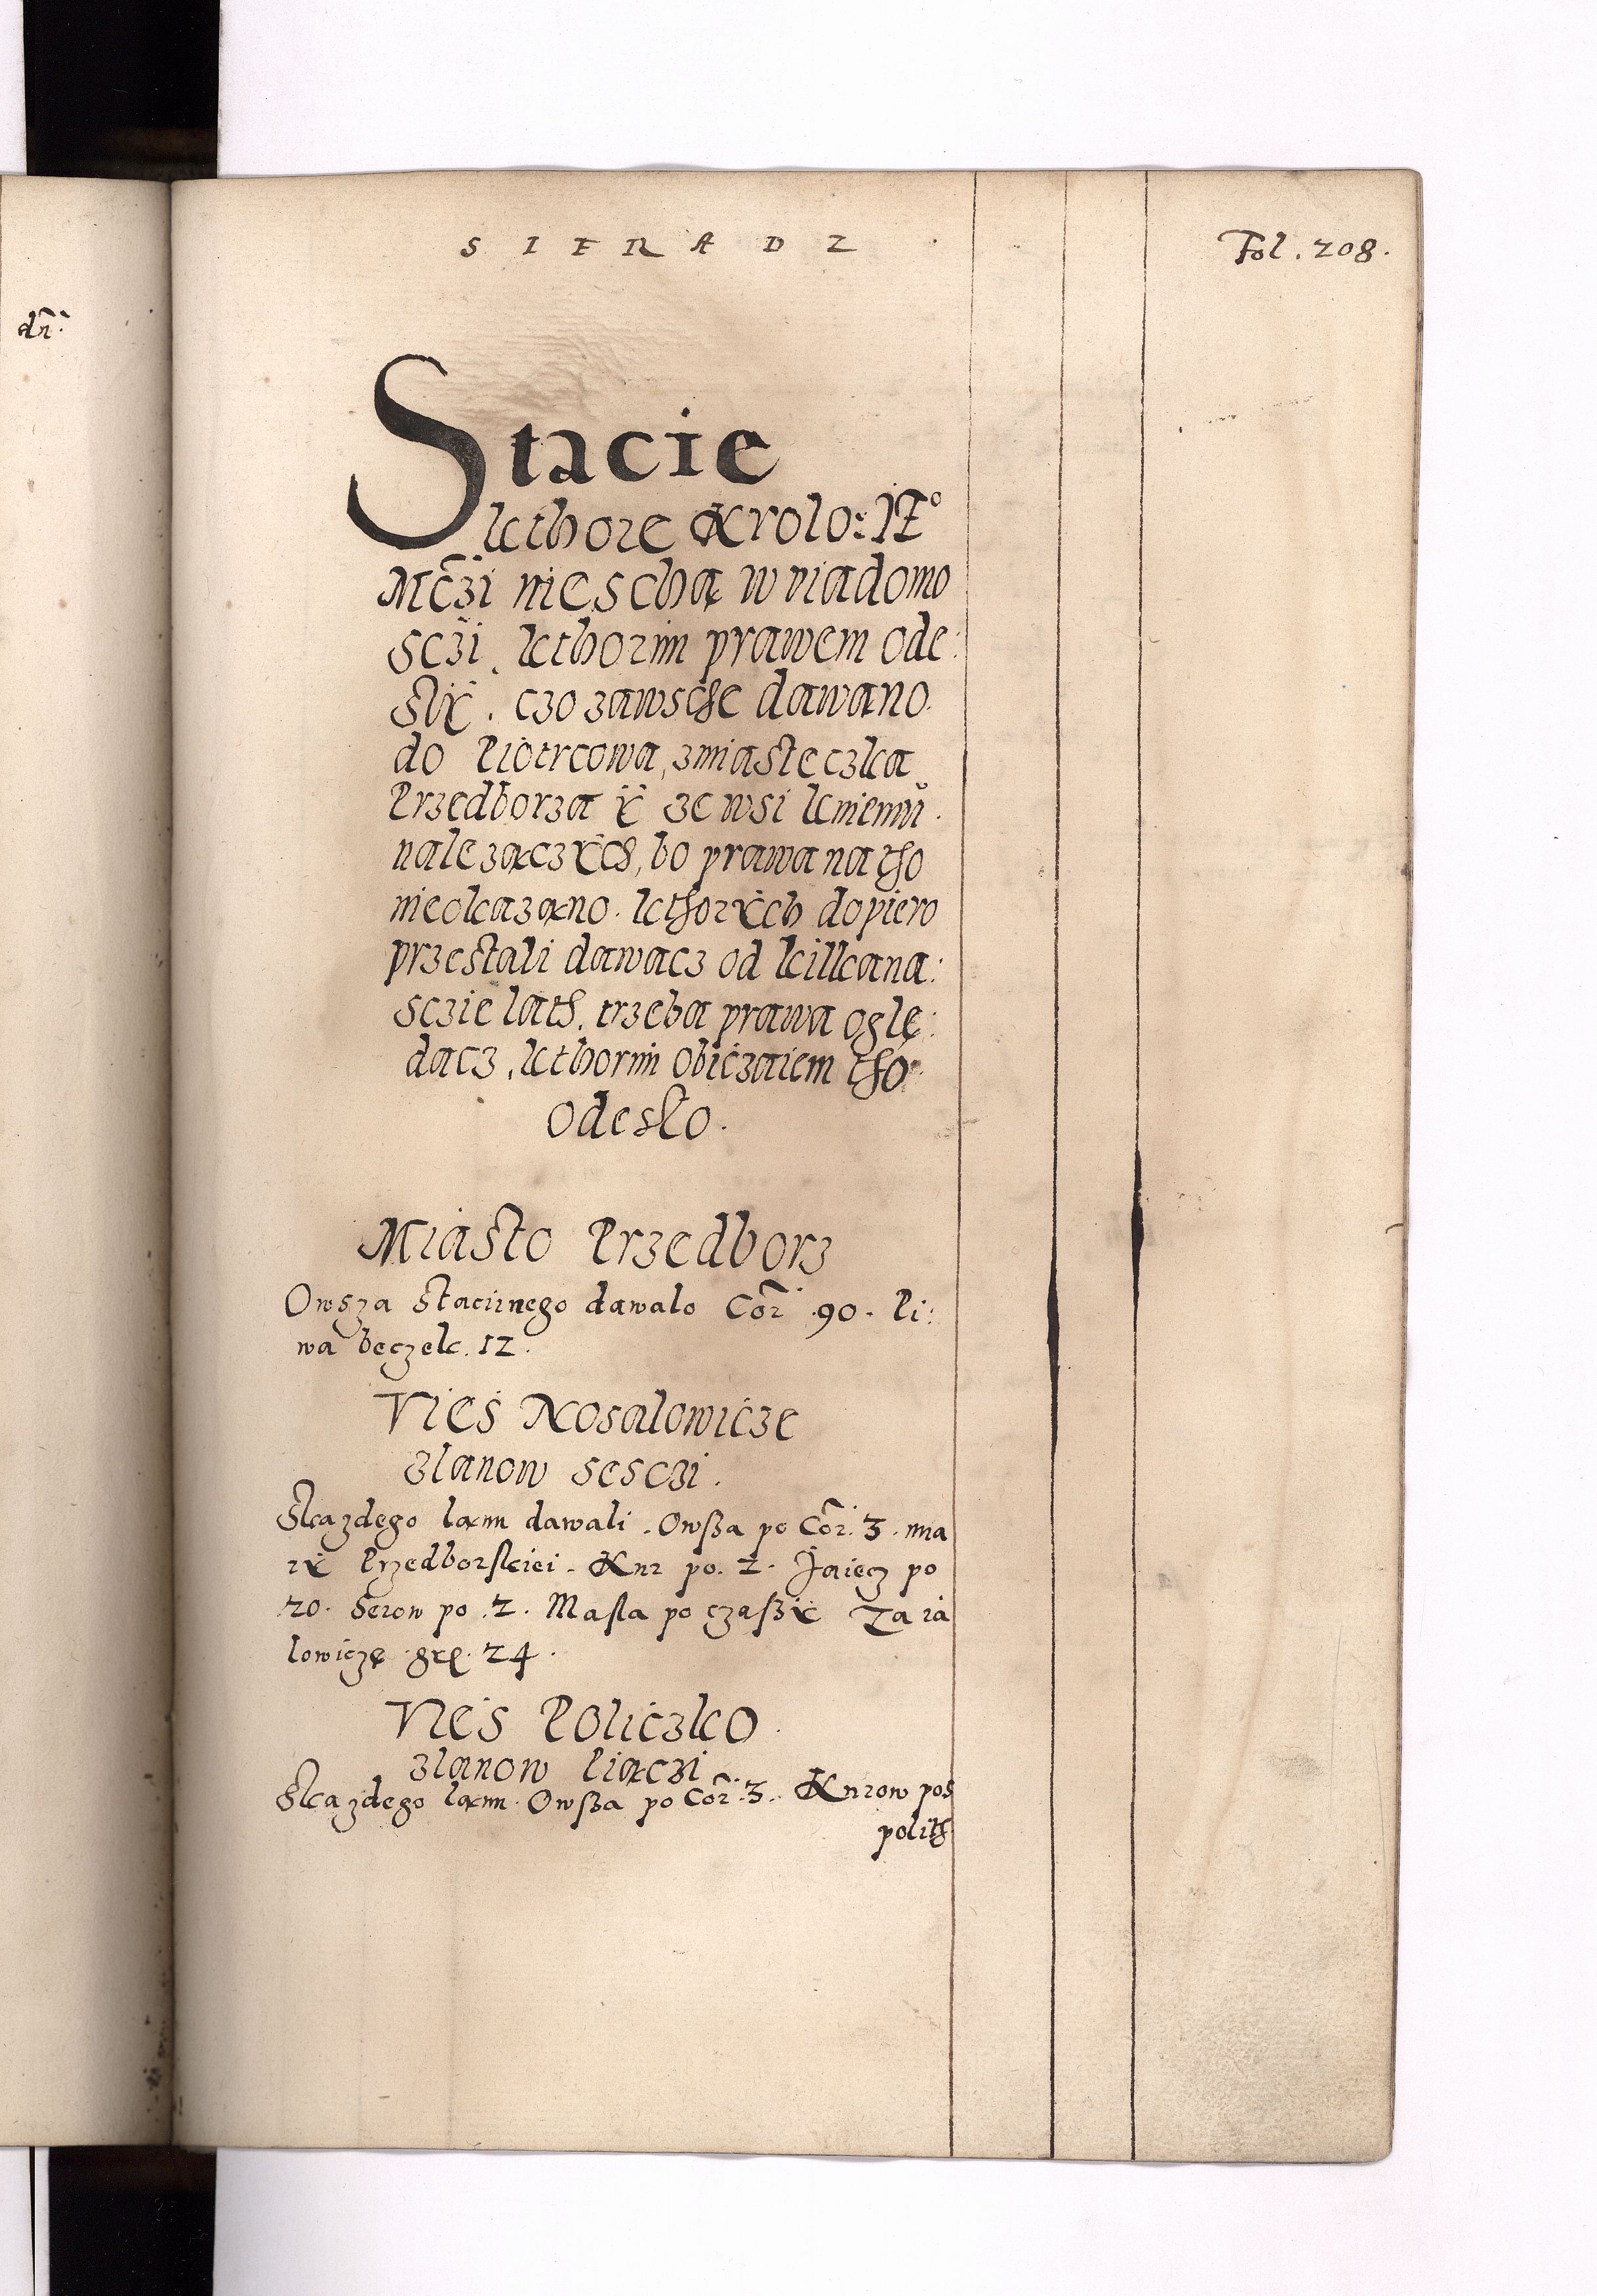 SIERADZ
Fol. 208.
dñ:
Stacie
kthore Krolo: JE°
Mczi niescha w viadomo
sczi, kthorim prawem ode:
sli. czo zawsche dawano
do Piotrcowa, zmiasteczka
Przedborza ẏ ze wsi kniemŭ
nalezączẏch, bo prawa na tho
nieokazano. kthorẏch dopiero
przestali dawacz od kilkana:
sczie lath. trzeba prawa oglę:
dacz, kthorim obiczaiem tho
odesło.
Miasto Przedborz
Owsza stacirnego dawalo Cor̃ .90. Pi:
wa beczek. 12.
Vies Nosalowicze
złanow sesczi.
Skazdego łanu dawali. Owsza po Cor̃. 3. mia
rẏ Przedborskiei. Kur po. 2. Jaiecz po
20. Serow po .2. Masla po czaszẏ Za ia
lowiczę gr. 24.
Vies Policzko
złanow Piączi
Skazdego łanu. Owsza po Cor̃. 3. Kurow pos
polith